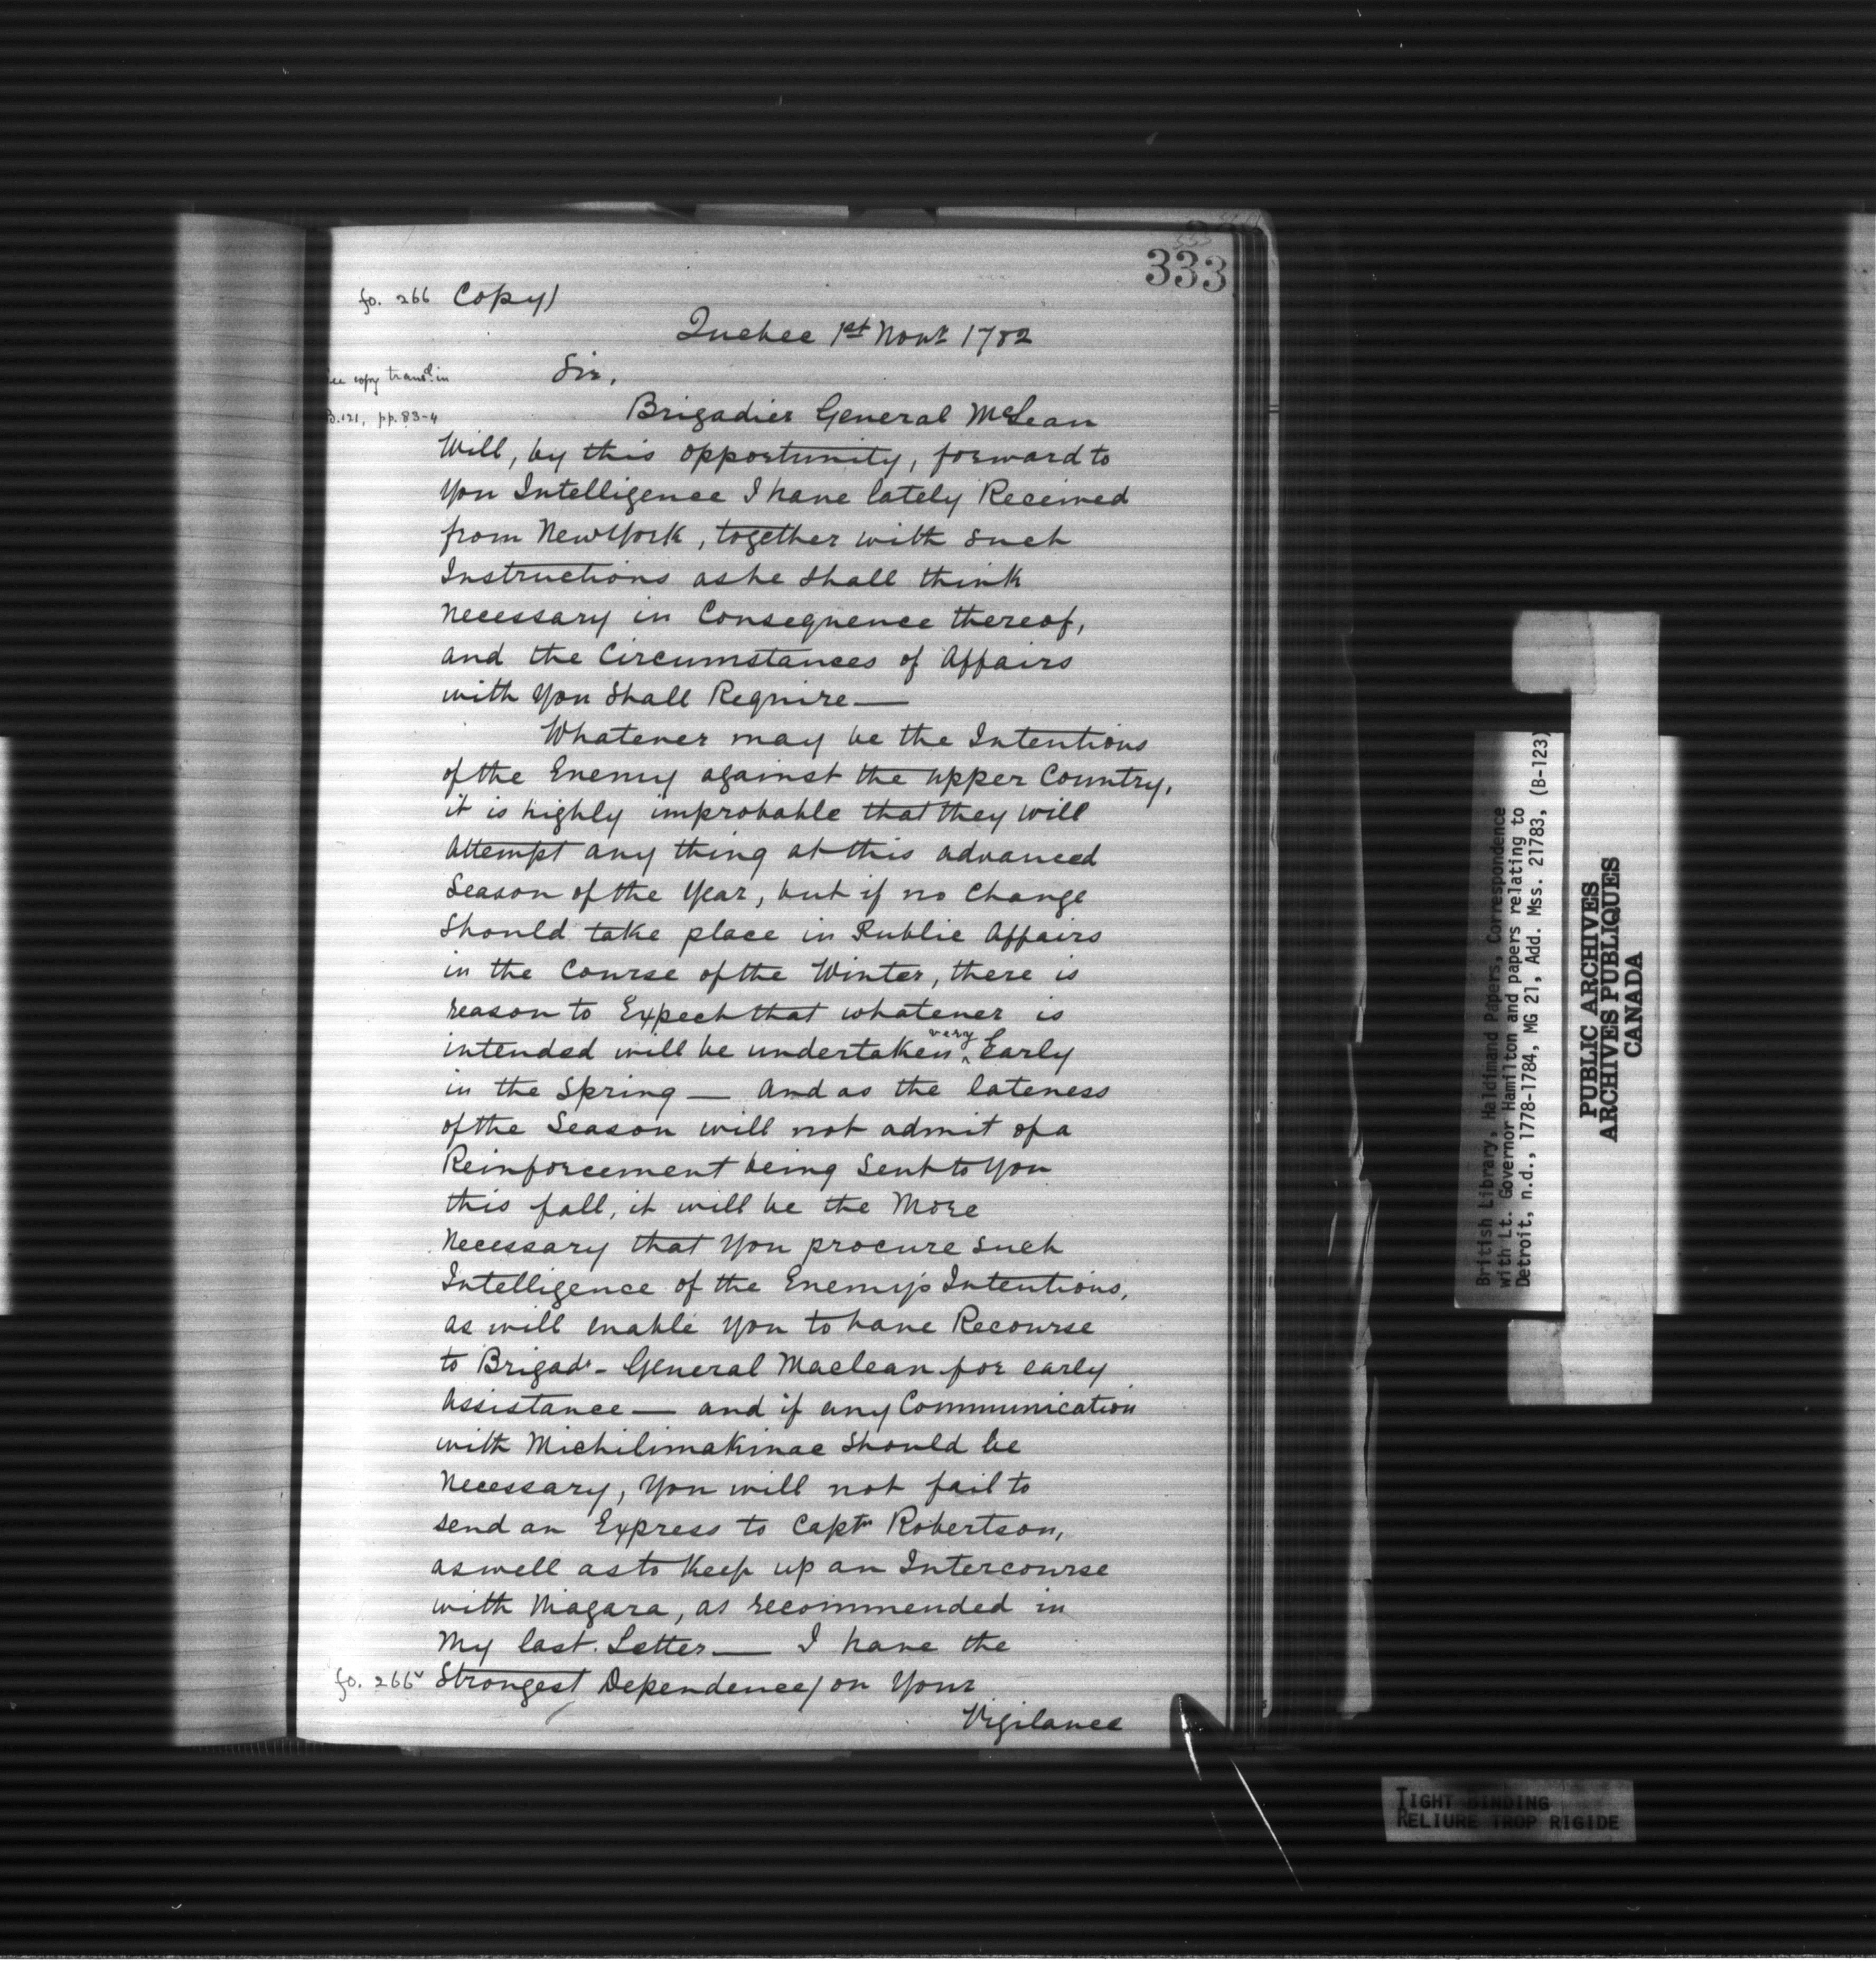 333
fo. 266 Copy)
Quebec 1st Novr 1782
See copy transd. in
Sir,
B.121, pp. 83-4
Brigadier General McLean
Will, by this opportunity, forward to
You Intelligence I have lately Received
from New York, together with such
Instructions as he Shall think
necessary in Consequence thereof,
and the Circumstances of Affairs
with You Shall Require —
Whatever may be the Intentions
of the Enemy against the upper Country,
it is highly improbable that they will
attempt any thing at this advanced
Season of the Year, but if no Change
Should take place in Public Affairs
in the Course of the Winter, there is
reason to Expect that whatever is
intended will be undertaken ^very Early
in the Spring — And as the lateness
of the Season will not admit of a
Reinforcement being Sent to You
this fall, it will be the More
Necessary that You procure Such
Intelligence of the Enemy's Intentions,
as will enable You to have Recourse
to Brigadr - General Maclean for early
Assistance — and if any Communication
with Michilimakinac Should be
Necessary, You will not fail to
send an Express to Captn Robertson,
as well as to Keep up an Intercourse
with Niagara, as recommended in
My last. Letter — I have the
fo. 266v Strongest Dependence / on Your
Vigilance
British Library, Haldimand Papers, Correspondence
with Lt. Governor Hamilton and papers relating to
Detroit, n.d., 1778-1784, MG 21, Add. Mss. 21783, (B-123)
PUBLIC ARCHIVES
ARCHIVES PUBLIQUES
CANADA
TIGHT BINDING
RELIURE TROP RIGIDE